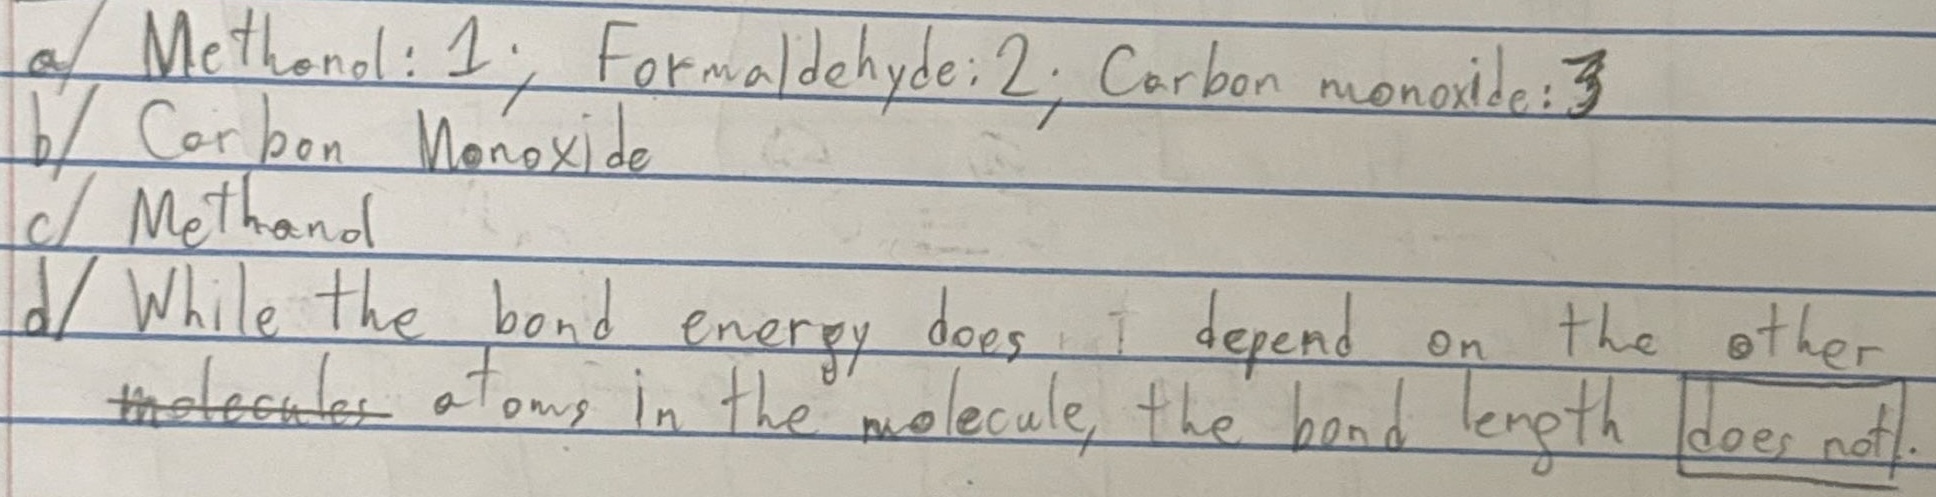 a/ Methanol: 1; Formaldehyde: 2; Carbon monoxide: 3
b/ Carbon Monoxide
c/ Methanol
d/ While the bond energy does depend on the other
molecules atoms in the molecule, the bond length does not.